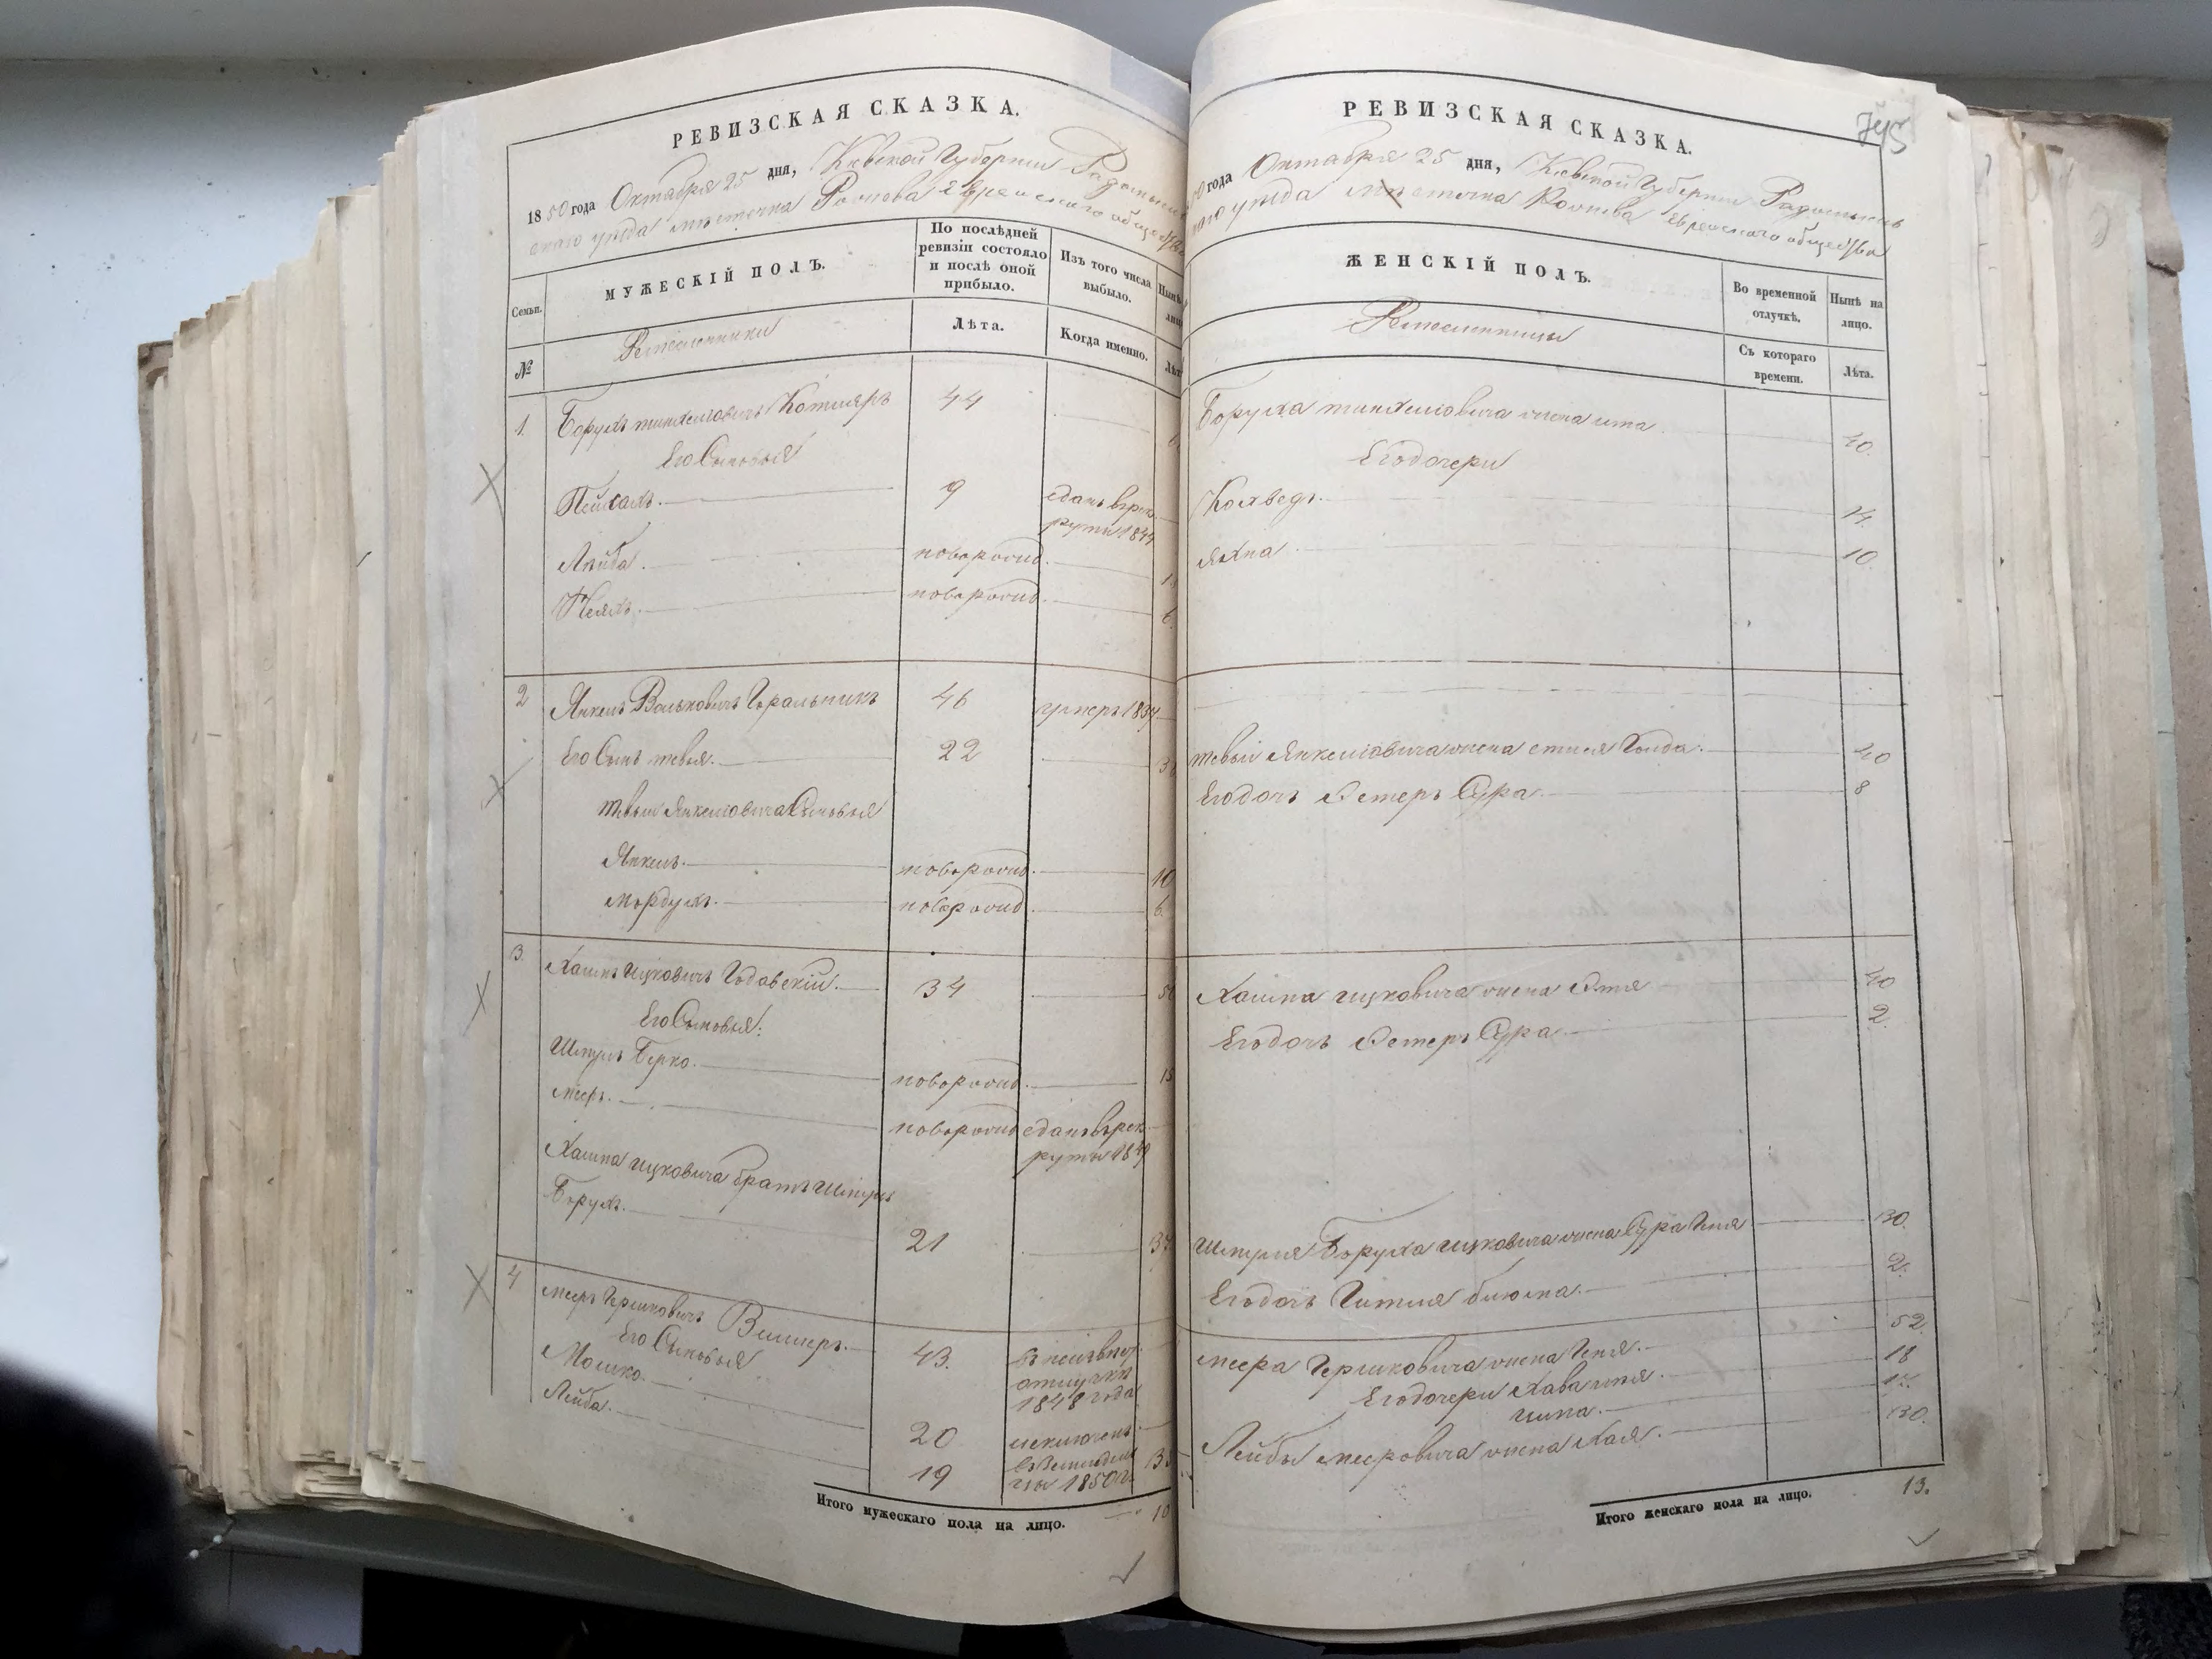 РЕВИЗСКАЯ СКАЗКА.
1850 года Октября 25 дня, Кіевской Губерніи Радомысль
скаго уезда местечка Еврейскаго общества
Семьи.
МУЖЕСКІЙ ПОЛЪ.
По послѣдней ревизіи состояло и послѣ оной прибыло.
Изъ того числа выбыло.
№
Ремесленники
Лѣта.
Когда именно.
1. Борухъ Котляръ 44
Его Сыновья
Пейсахъ. 9 сданъ врек
руты 1844
Лейба. новорожд.
новорожд. 6.
2 Янкель Вольковичъ Гуральникъ 46 умеръ 1834
Его Сынъ тевья. 22
тевьи Янкелевича Сыновья
Янкель. новорожд. 10
мордухъ. новорожд. 6.
3. Хаимъ Ицковичъ Годовскій. 34 50
Его Сыновья:
Шмуль Берко. новорожд. 15
меръ. новорожд. сданъ врек
руты 1849
Хаима ицковича братъ Шмуль
Борухъ. 21 37
4 меръ Гершковичъ 43.
1848 года
Его Сыновья
Мошко. 20 исключенъ
1850 г.
Лейба. 19 35
Итого мужескаго пола на лицо. 10
РЕВИЗСКАЯ СКАЗКА.
745
года Октября 25 дня, Кіевской Губерніи Радомысль
скаго уезда местечка Еврейскаго общества
ЖЕНСКІЙ ПОЛЪ.
Во временной отлучкѣ.
Нынѣ на лицо.
Ремесленницы
Съ котораго времени.
Лѣта.
Боруха жена 40.
Его дочери
14.
Яхна 10.
тевьи Янкелевича жена Голда. 40
Его дочь Эстеръ Сура. 8
Хаима ицковича жена Этя 40
Его дочь Эстеръ Сура. 2.
Шмуля Боруха ицковича жена Сура Геня 30.
Его дочь Гитля блюма. 2.
меера Гершковича жена Геня. 52.
Его дочери Хава 18
Ципа.
Лейбы меровича жена Хая. 30.
Итого женскаго пола на лицо. 13.